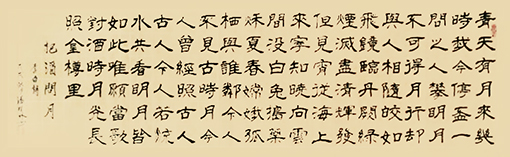 青天有月來幾
時我今停盃一
問之人攀明月
不可得月行却
與人相隨皎如
飛鏡臨丹闕綠
煙滅盡清輝發
但見宵從海上
來寧知曉向雲
間沒白兔擣藥
秋復春嫦娥孤
栖與誰鄰今人
不見古時月今
月曾經照古人
古人今人若流
水共看明月皆
如此唯願當歌
對酒時月光長
照金樽里
把酒問月